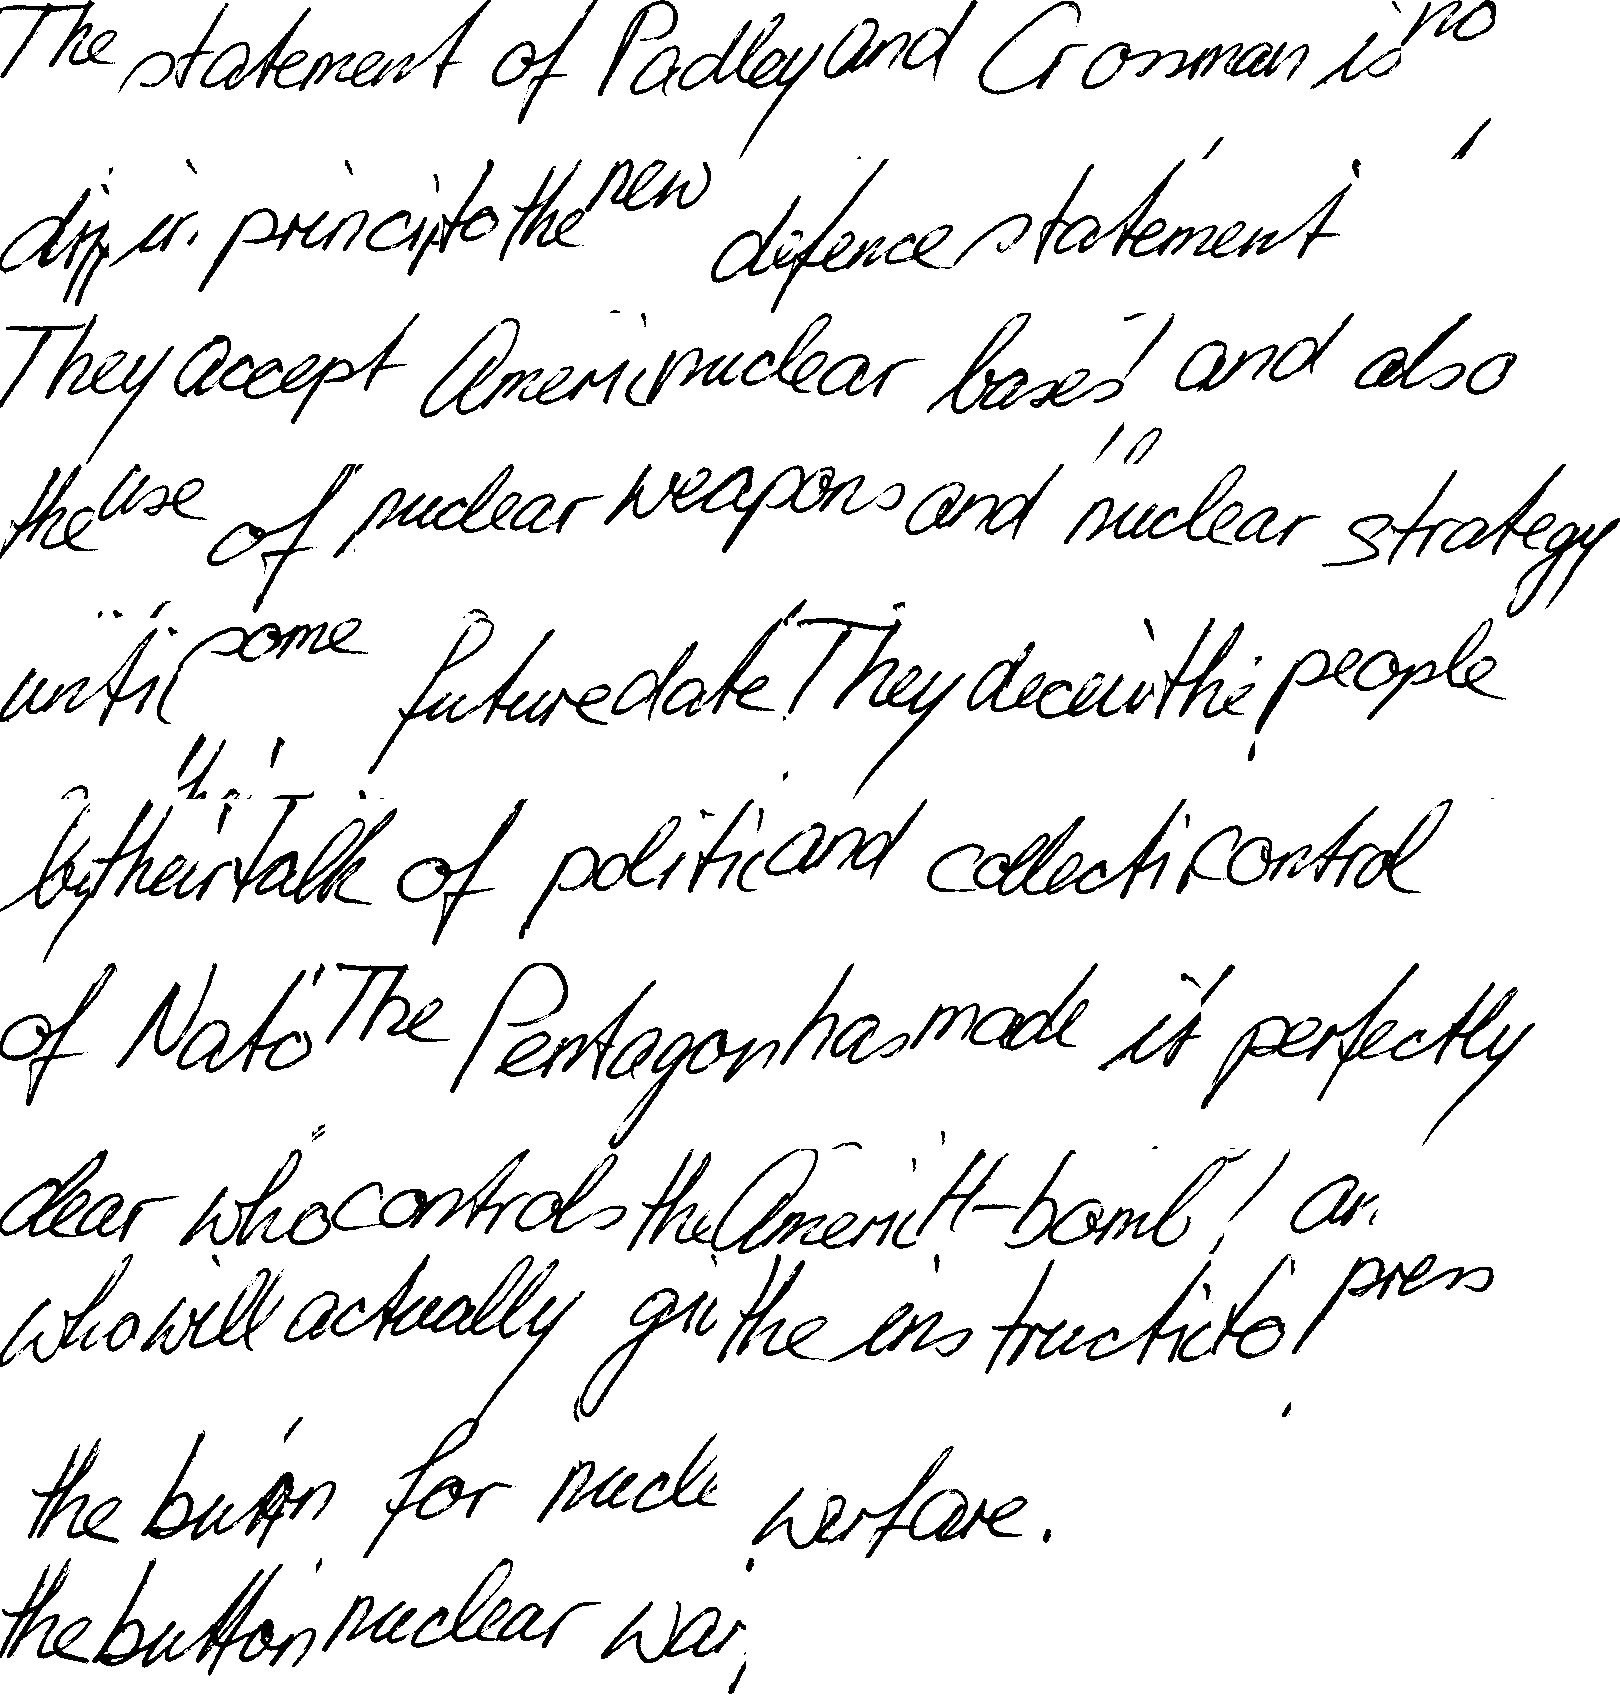 The statement of Padley and Crossman is no
in princip to the new defence statement
They accept Ameri nuclear bases and also
the use of nuclear weapons and nuclear strategy
until some future date. They deceiv the people
by their talk of politic and collecti control
of Nato The Pentagon has made it perfectly
clear who controls the Ameri H-bomb, an
who will actually giv the instructi to press
the button for nucle warfare.
the button nuclear war,